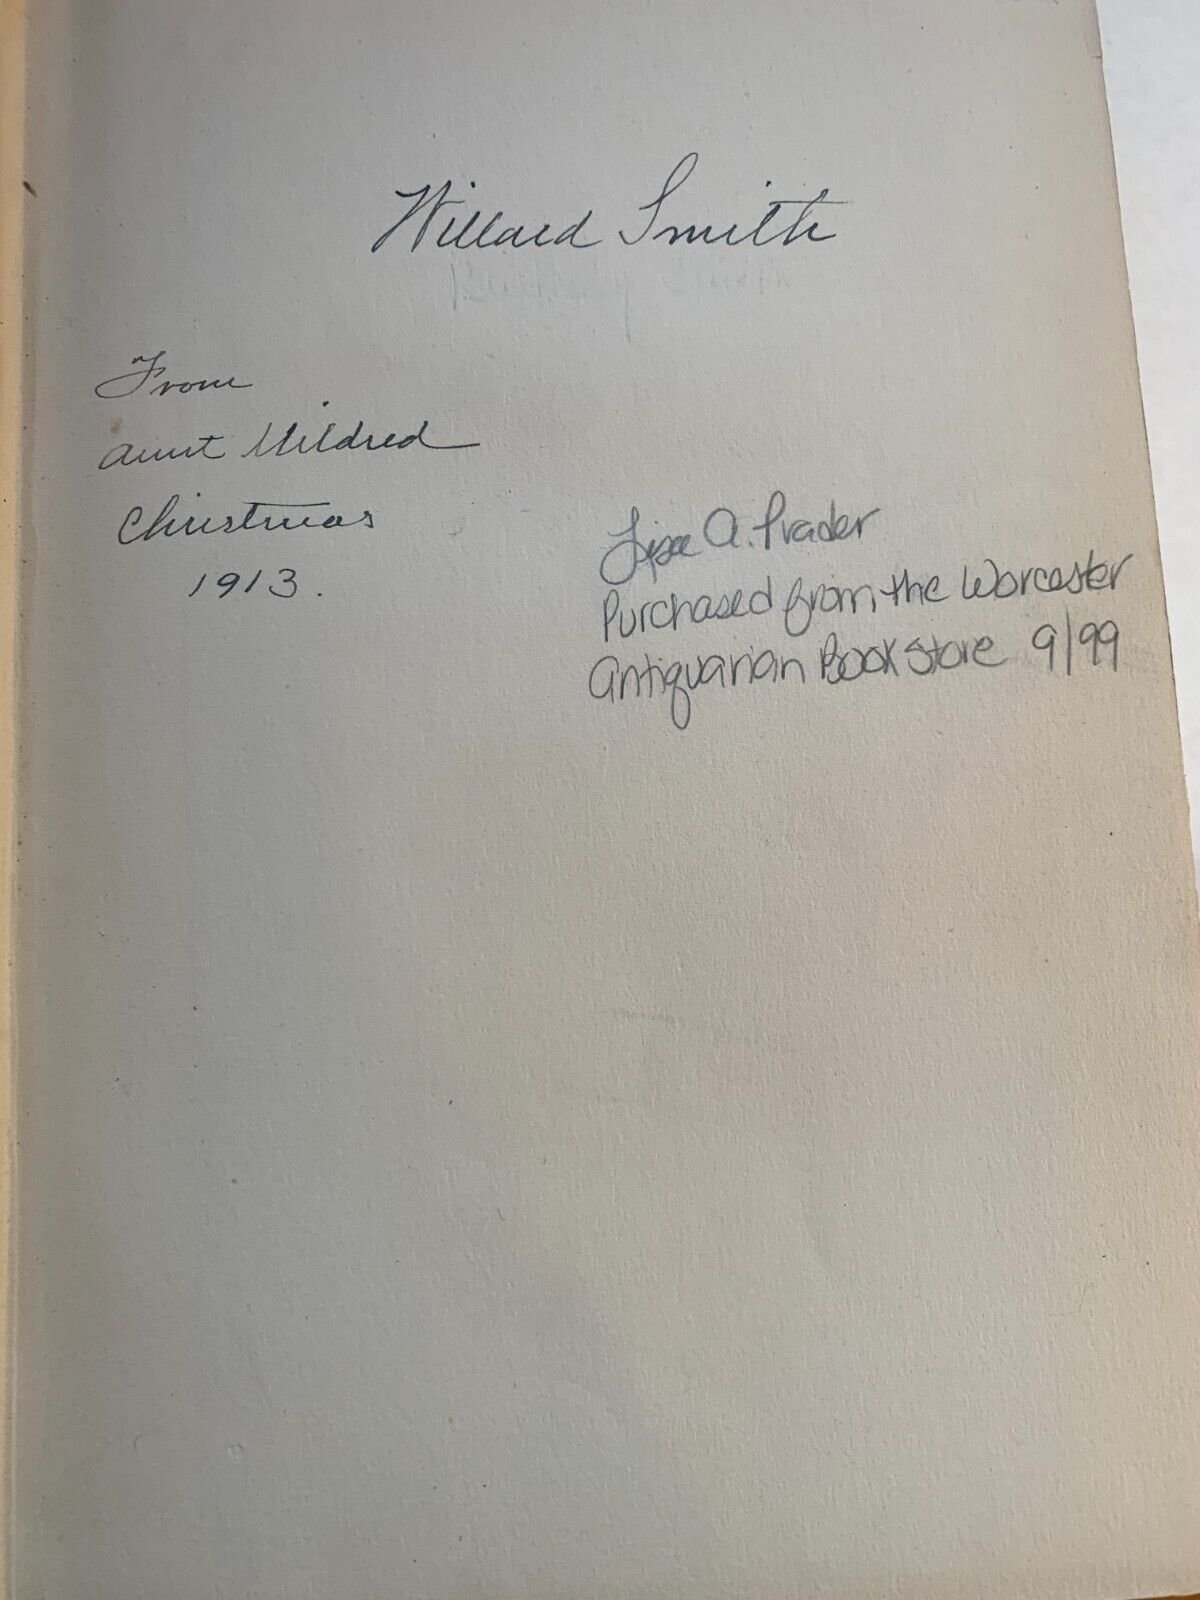 Willard Smith
From
Aunt Mildred
Christmas
1913.
Lisa A. Prader
Purchased from the Worcester
Antiquarian Book Store 9/99